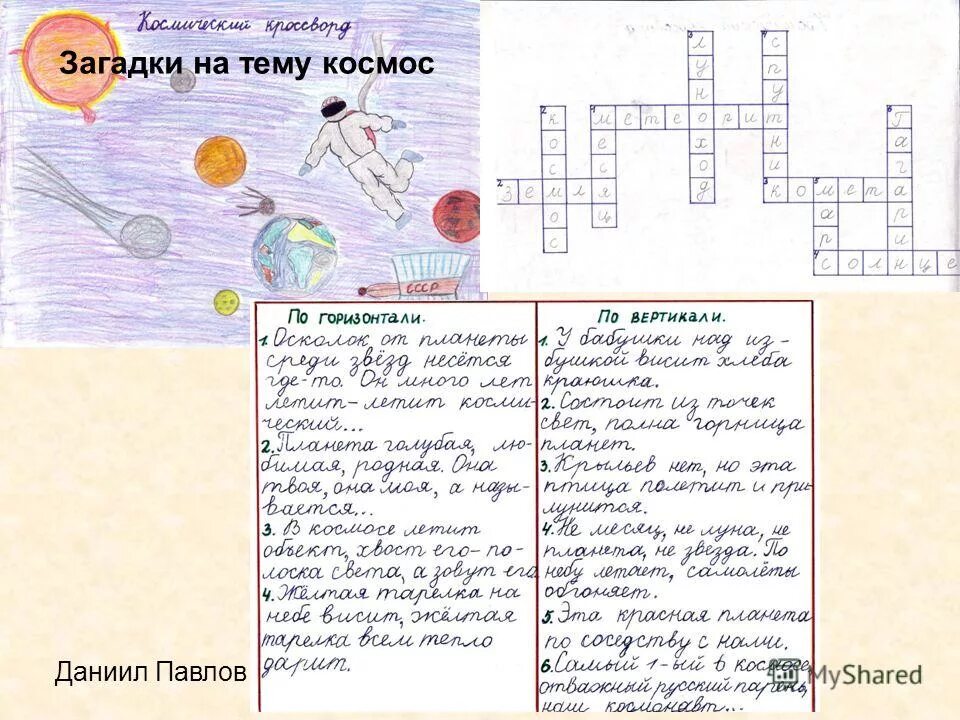 Космический кроссворд
Загадки на тему космос
3 л
у
н
о
х
о
д
4 с
п
у
т
н
и
к
2 к
о
с
м
о
с
1 метеорит
е
с
я
ц
6 Г
а
г
а
р
и
н
2 Земля
3 комета
5 м
а
р
с
4 солнце
СССР
По горизонтали.
1. Осколок от планеты
среди звёзд несётся
где-то. Он много лет
летит-летит косми-
ческий...
2. Планета голубая, лю-
бимая, родная. Она
твоя, она моя, а назы-
вается...
3. В космосе летит
объект, хвост его-по-
лоска света, а зовут его
4. Жёлтая тарелка на
небе висит, жёлтая
тарелка всем тепло
дарит.
По вертикали.
1. У бабушки над из-
бушкой висит хлеба
краюшка.
2. Состоит из точек
свет, полна горница
планет.
3. Крыльев нет, но эта
птица полетит и при-
лунится.
4. Не месяц, не луна, не
планета, не звезда. По
небу летает, самолёты
обгоняет.
5. Эта красная планета
по соседству с нами.
6. Самый 1-ый в космосе,
отважный русский парень,
наш космонавт...
Даниил Павлов
MyShared